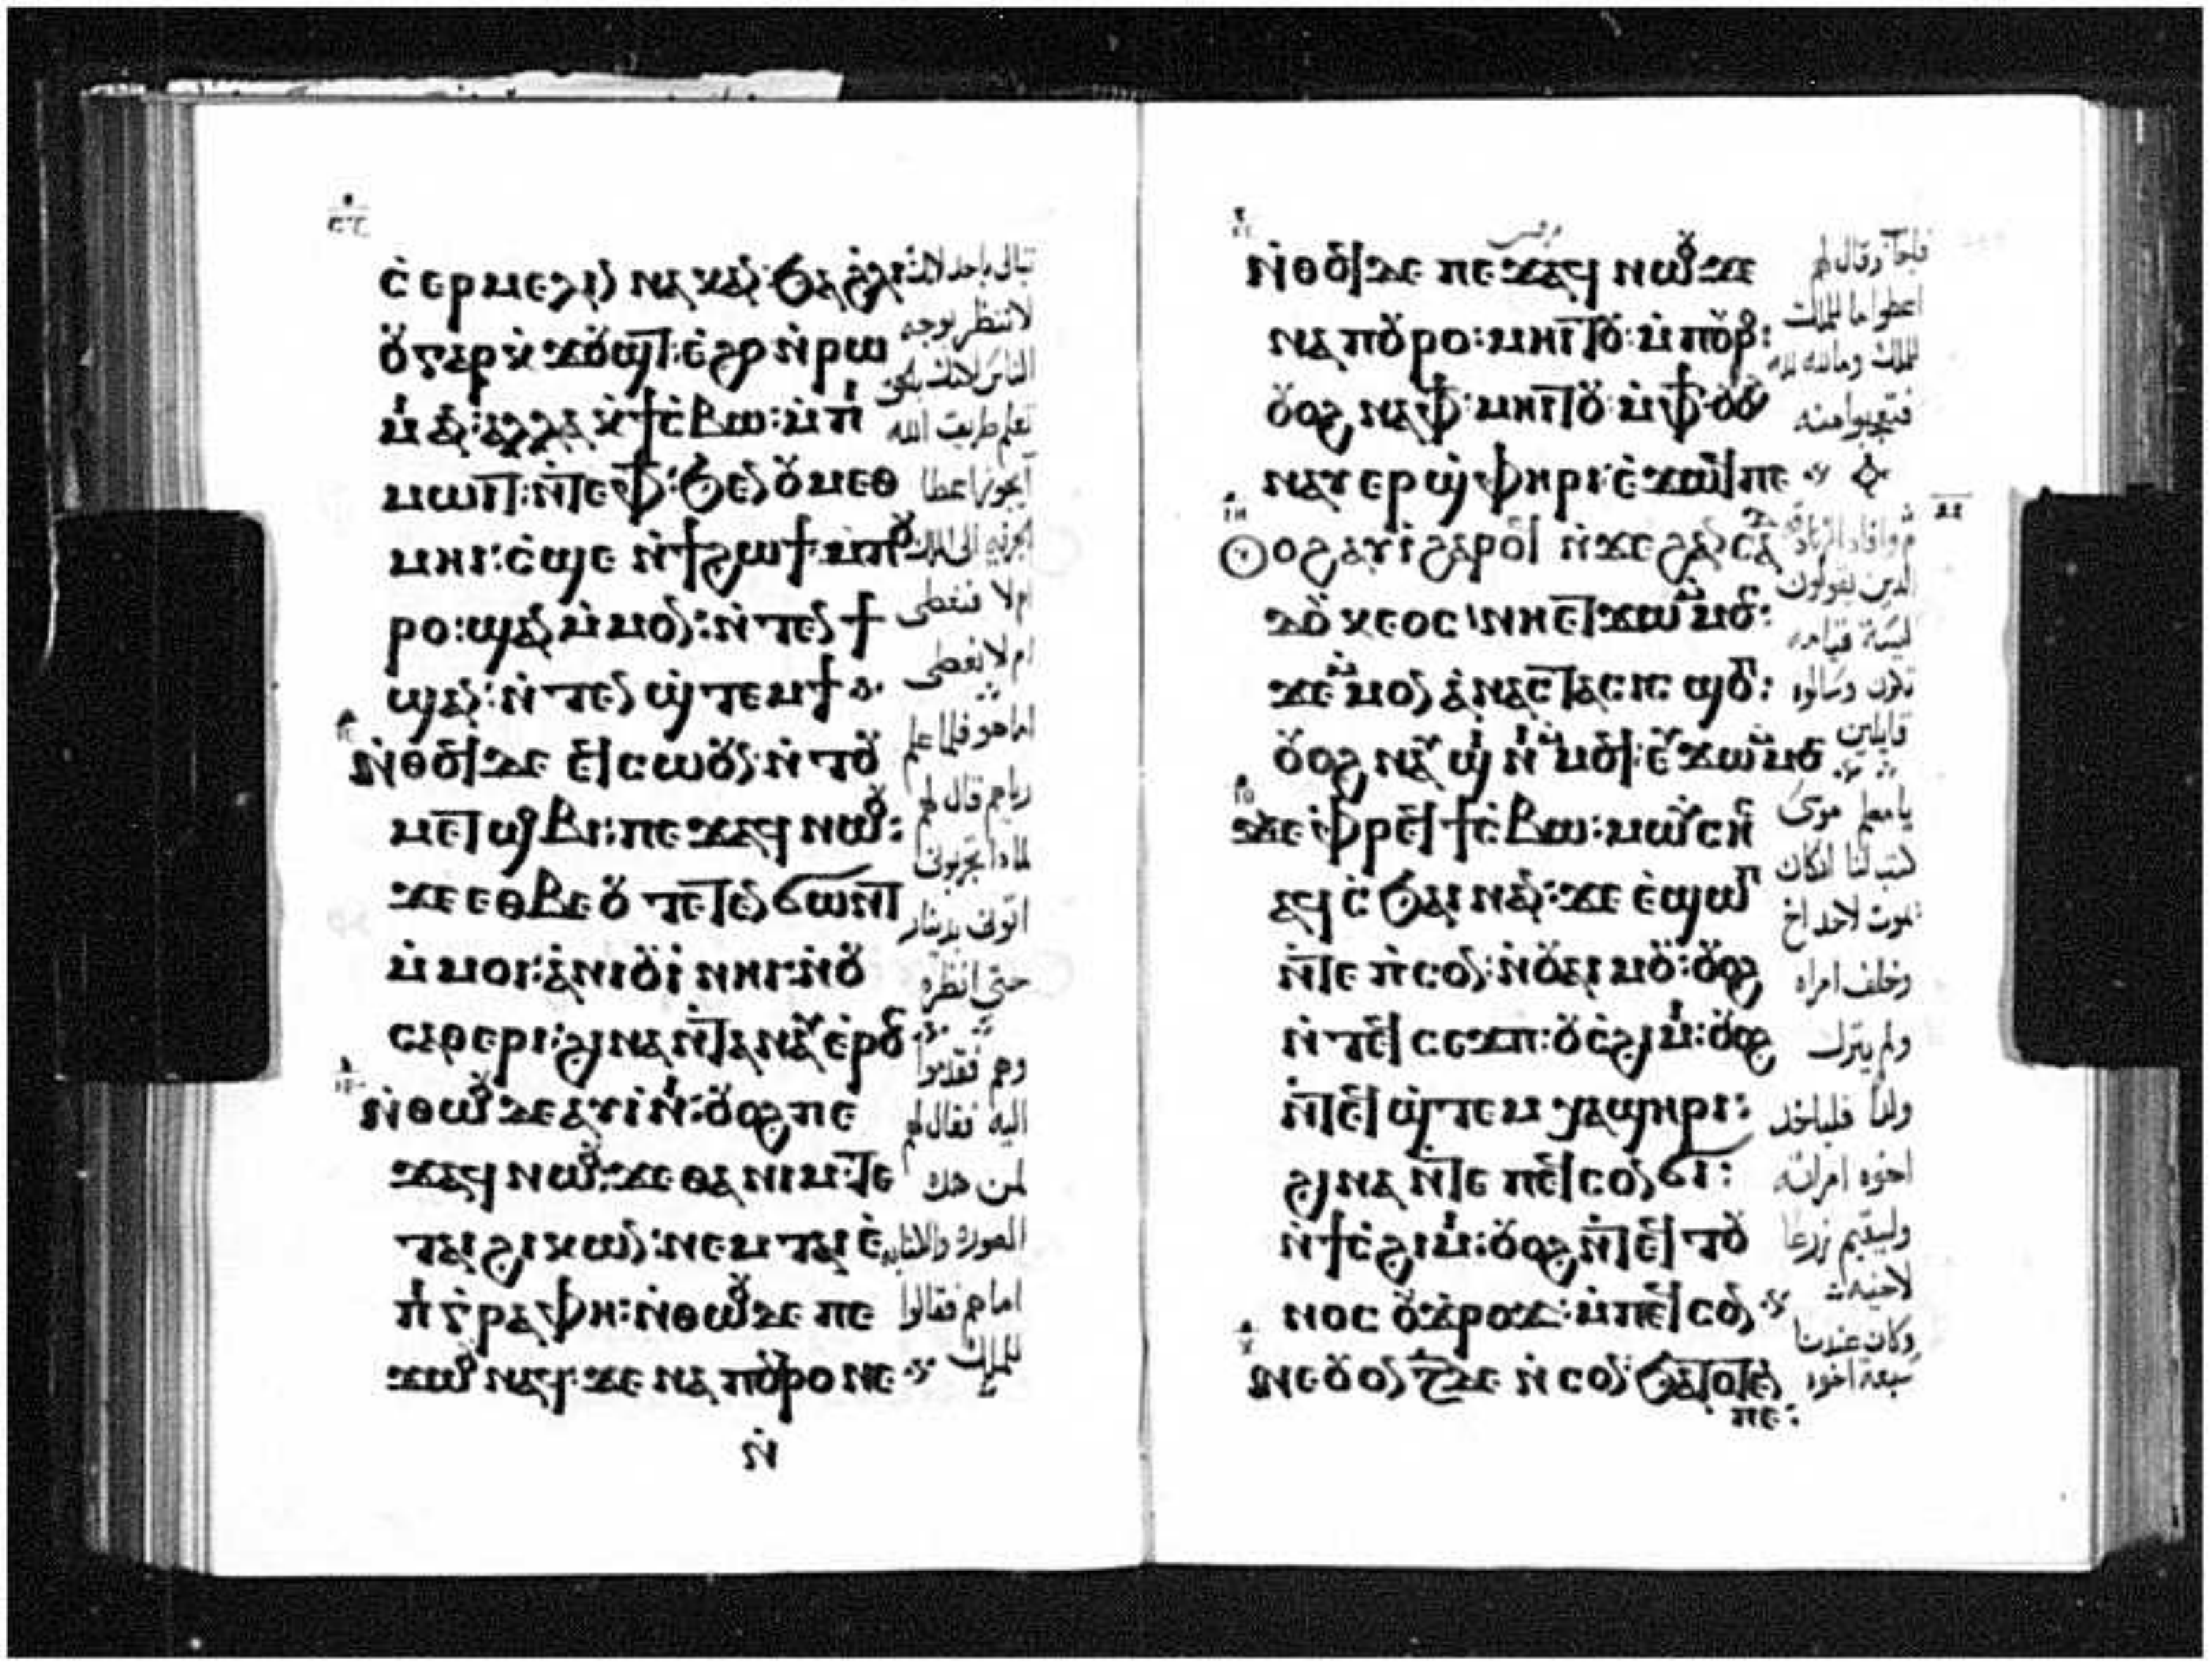 ⲥ̀ⲉⲣⲙⲉⲗⲓⲛ ⲛⲁⲕ ⲁⲛ: ϧⲁ ϩ̀ⲗⲓ
ⲟⲩⲅⲁⲣ ⲕ̀ϫⲟⲩϣⲧ: ⲉ̀ϩⲣ ⲛ̀ⲣⲱ
ⲁⲛ: ⲁⲗⲗⲁ ⲕ̀ϯⲥ̀ⲃⲱ: ⲙ̀ⲡ
ⲙⲱⲓⲧ: ⲛ̀ⲧⲉⲫϯ: ϧⲉⲛ ⲟⲩⲙⲉⲑ
ⲙⲏⲓ: ⲥ̀ϣⲉ ⲛ̀ϯϩⲱϯ: ⲙ̀ⲡⲟⲩ
ⲣⲟ: ϣⲁⲛ ⲙ̀ⲙⲟⲛ: ⲛ̀ⲧⲉⲛϯ
ϣⲁⲛ: ⲛ̀ⲧⲉⲛϣ̀ⲧⲉⲙϯ
ⲛ̀ⲑⲟϥ ⲇⲉ ⲉϥⲥⲱⲟⲩⲛ: ⲛ̀ⲧⲟⲩ
ⲙⲉⲧϣⲟⲃⲓ: ⲡⲉϫⲁϥ ⲛⲱⲟⲩ:
ϫⲉ ⲉⲑⲃⲉⲟⲩ ⲧⲉⲧⲉⲛϭⲱⲛⲧ
ⲙ̀ⲙⲟⲓ: ⲁ̀ⲛⲓⲟⲩⲓ̀ ⲛⲏⲓ: ⲛ̀ⲟⲩ
ⲥⲁⲑⲉⲣⲓ: ϩⲓⲛⲁ ⲛ̀ⲧⲁⲛⲁⲩ ⲉ̀ⲣⲟϥ
ⲛ̀ⲑⲱⲟⲩ ⲇⲉ ⲁⲩⲓ̀ⲛⲓ: ⲟⲩⲟϩ ⲡⲉ
ϫⲁϥ ⲛⲱⲟⲩ: ϫⲉ ⲑⲁ ⲛⲓⲙ: ⲧⲉ
ⲧⲁⲓϩⲓⲕⲱⲛ: ⲛⲉⲙ ⲧⲁⲓⲉ̀
ⲡⲓⲅⲣⲁⲫⲏ: ⲛ̀ⲑⲱⲟⲩ ⲇⲉ ⲡⲉ
ϫⲱⲟⲩ ⲛⲁϥ: ϫⲉ ⲛⲁ ⲡⲟⲩⲣⲟ ⲛⲉ
ⲛ̀
لا تنظر بوجه
تعلم طريق الله
ام لا فنعطى
ام لا نعطى
اما هو فلما علم
رياهم قال لهم
لماذا تجربونى
اتونى بدينار
حتى انظره
وهم فقدموا
اليه فقال لهم
لمن هذه
الصورة والكتابة
اما هم فقالوا
للملك
ⲛ̀ⲑⲟϥ ⲇⲉ ⲡⲉϫⲁϥ ⲛⲱⲟⲩ ϫⲉ
ⲛⲁ ⲡⲟⲩⲣⲟ: ⲙⲏⲓⲧⲟⲩ: ⲙ̀ⲡⲟⲩⲣ:
ⲟⲩⲟϩ ⲛⲁⲫϯ: ⲙⲏⲓⲧⲟⲩ ⲙ̀ⲫϯ: ⲟⲩ
ⲛⲁⲩⲉⲣϣ̀ⲫⲏⲣⲓ: ⲉ̀ϫⲱϥ ⲡⲉ
ⲟⲩⲟϩ ⲁⲩⲓ̀ ϩⲁⲣⲟϥ ⲛ̀ϫⲉ ϩⲁⲛⲥⲁ
ⲇⲟⲩⲕⲉⲟⲥ: ⲛⲏ ⲉⲧϫⲱ ⲙ̀ⲙⲟⲥ:
ϫⲉ ⲙ̀ⲙⲟⲛ ⲁ̀ⲛⲁⲥⲧⲁⲥⲓⲥ ϣⲟⲡ:
ⲟⲩⲟϩ ⲛⲁⲩϣⲓⲛⲓ ⲙ̀ⲙⲟϥ: ⲉⲩϫⲱ ⲙ̀ⲙⲟⲥ
ϫⲉ ⲫⲣⲉϥϯⲥ̀ⲃⲱ: ⲙⲱⲩⲥⲏⲥ
ⲁϥⲥ̀ϧⲁⲓ ⲛⲁⲛ: ϫⲉ ⲉ̀ϣⲱⲡ
ⲛ̀ⲧⲉ ⲡ̀ⲥⲟⲛ: ⲛ̀ⲟⲩⲁⲓ ⲙⲟⲩ: ⲟⲩⲟϩ
ⲛ̀ⲧⲉϥⲥⲉϫⲡ: ⲟⲩⲥ̀ϩⲓⲙⲓ: ⲟⲩⲟϩ
ⲛ̀ⲧⲉϥϣ̀ⲧⲉⲙⲭⲁϣⲏⲣⲓ:
ϩⲓⲛⲁ ⲛ̀ⲧⲉ ⲡⲉϥⲥⲟⲛ ϭⲓ:
ⲛ̀ϯⲥ̀ϩⲓⲙⲓ: ⲟⲩⲟϩ ⲛ̀ⲧⲉϥⲧⲟⲩ
ⲛⲟⲥ ⲟⲩϫⲣⲟϫ: ⲙ̀ⲡⲉϥⲥⲟⲛ
ⲛⲉ ⲟⲩⲟⲛ ⲍ̅ ⲇⲉ ⲛ̀ⲥⲟⲛ: ϧⲁⲧⲟⲧⲉⲛ
ⲡⲉ:
اعطوا ما للملك
للملك وما لله لله
فتعجبوا منه
الذين يقولون
ليس قيامه
قايلين
يا معلم موسى
كتب لنا ان كان
يموت لاحد اخ
وخلف امراه
ولم يترك
ولدا فلياخذ
اخوه امراته
وليقيم زرعا
لاخيه
وكان عندنا
سبعة اخوه